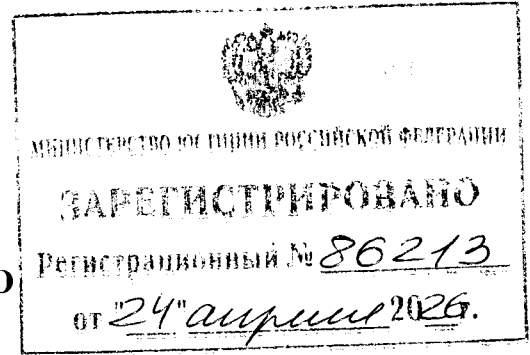 МИНИСТЕРСТВО ЮСТИЦИИ РОССИЙСКОЙ ФЕДЕРАЦИИ
ЗАРЕГИСТРИРОВАНО
Регистрационный № 86213
от "24" апреля 2026г.